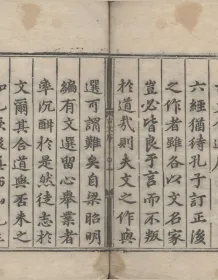 六經猶待孔子訂正後
之作者雖各以文名家
豈必皆良于言而不叛
於道哉則夫文之作與
選可謂難矣自梁昭明
編有文選留心舉業者
率沉酣於是然徒志於
文爾其合道與否未之